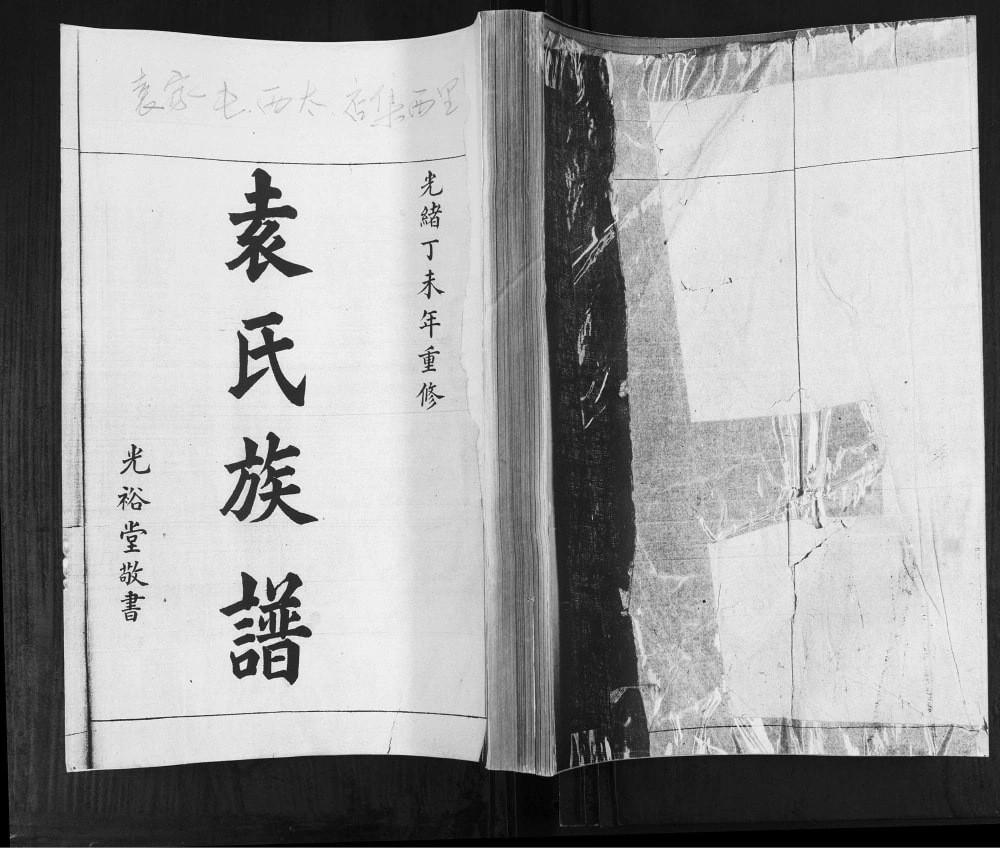 袁家屯.西大.店集西里
光緒丁未年重修
袁氏族譜
光裕堂敬書